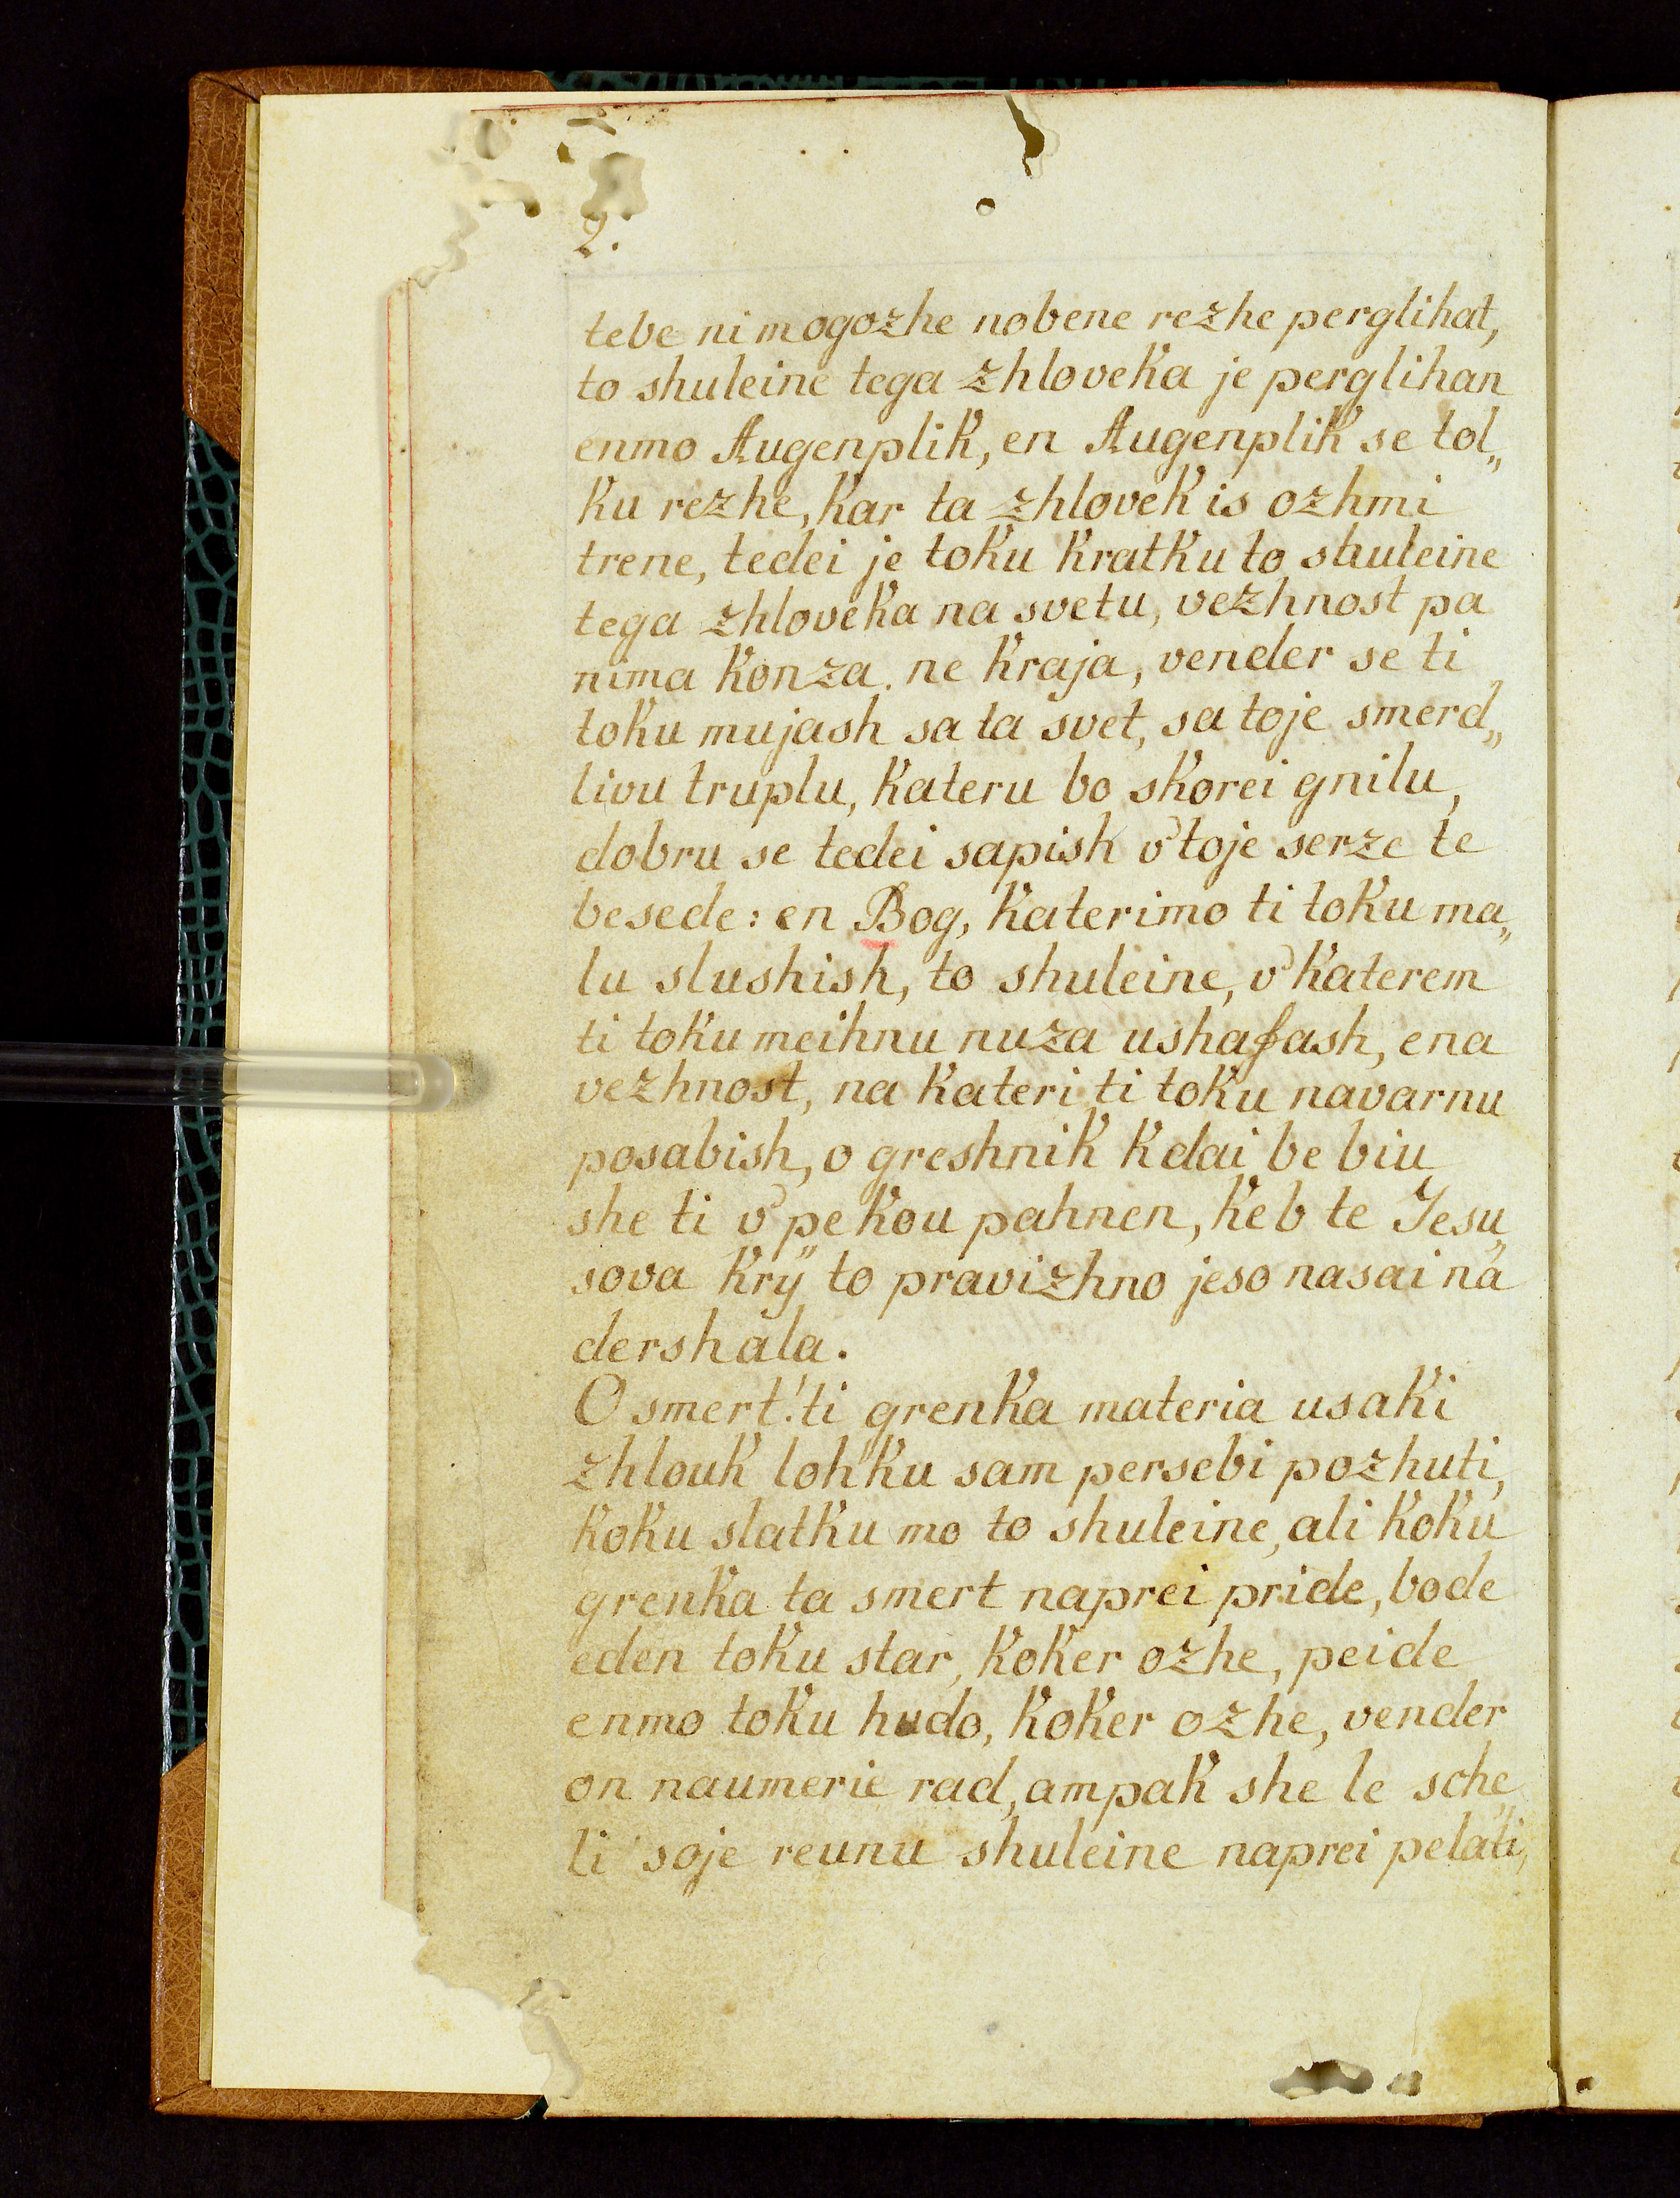 2.
tebe ni mogozhe nobene rezhe perglihat,
to shuleine tega zhloveka je perglihan
enmo Augenplik, en Augenplik se tol„
ku rezhe, kar ta zhlovek is ozhmi
trene, tedei je toku kratku to shuleine
tega zhloveka na svetu, vezhnost pa
nima konza. ne kraja, vender se ti
toku mujash sa ta svet, sa toje smerd„
livu truplu, kateru bo skorei gnilu,
dobru se tedei sapish v' toje serze te
besede: en Bog, katerimo ti toku ma„
lu slushish, to shuleine, v' katerem
ti toku meihnu nuza ushafash, ena
vezhnost, na kateri ti toku navarnu
posabish, o greshnik kdai be biu
she ti v' pekou pahnen, keb te Jesu„
sova krÿ to pravizhno jeso nasai na
dershala.
O smert! ti grenka materia usaki
zhlouk lohku sam persebi pozhuti,
koku slatku mo to shuleine, ali koku
grenka ta smert naprei pride, bode
eden toku star, koker ozhe, peide
enmo toku hudo, koker ozhe, vender
on naumerie rad, ampak she le sche„
li soje reunu shuleine naprei pelati,